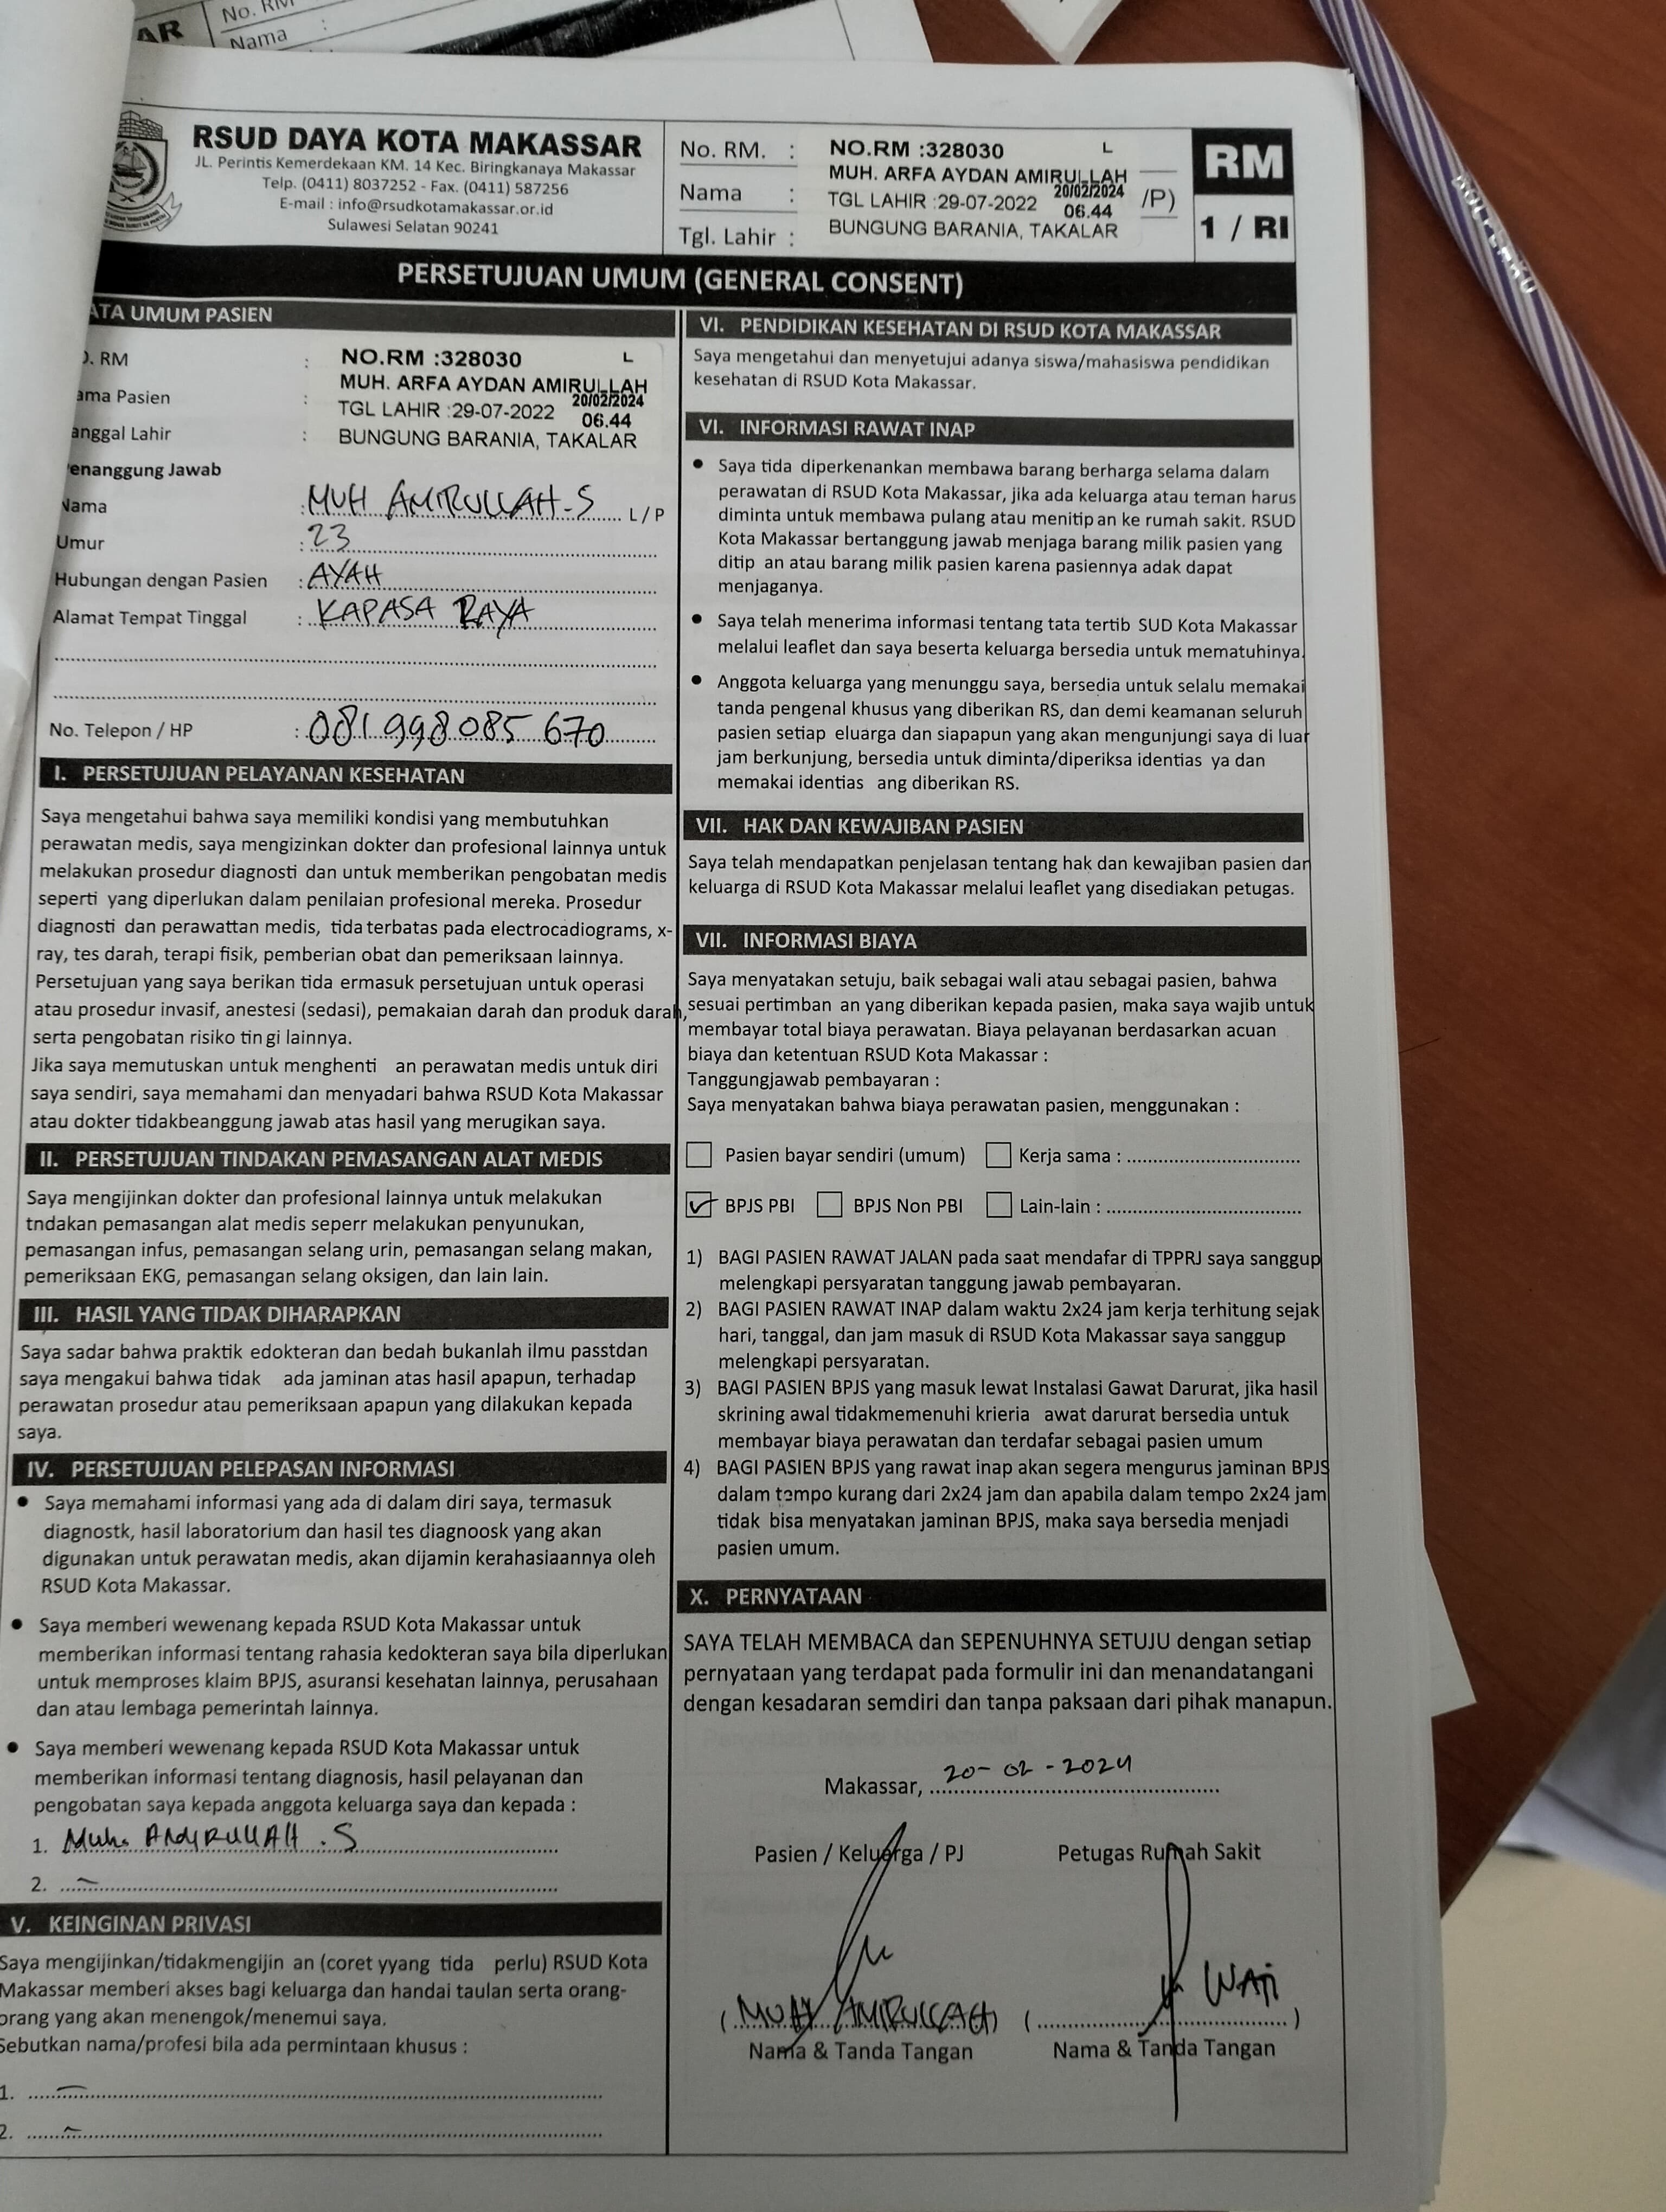 AR
No. RM
Nama :
RSUD DAYA KOTA MAKASSAR
JL. Perintis Kemerdekaan KM. 14 Kec. Biringkanaya Makassar
Telp. (0411) 8037252 - Fax. (0411) 587256
E-mail : info@rsudkotamakassar.or.id
Sulawesi Selatan 90241
No. RM. : NO.RM :328030 L
MUH. ARFA AYDAN AMIRULLAH
Nama : TGL LAHIR :29-07-2022 20/02/2024 06.44 /P)
Tgl. Lahir : BUNGUNG BARANIA, TAKALAR
RM
1 / RI
PERSETUJUAN UMUM (GENERAL CONSENT)
ATA UMUM PASIEN
O. RM : NO.RM :328030 L
MUH. ARFA AYDAN AMIRULLAH
ama Pasien : TGL LAHIR :29-07-2022 20/02/2024 06.44
anggal Lahir : BUNGUNG BARANIA, TAKALAR
enanggung Jawab
Nama : MUH AMIRULLAH.S L / P
Umur : 23
Hubungan dengan Pasien : AYAH
Alamat Tempat Tinggal : KAPASA RAYA
No. Telepon / HP : 081998085670
I. PERSETUJUAN PELAYANAN KESEHATAN
Saya mengetahui bahwa saya memiliki kondisi yang membutuhkan
perawatan medis, saya mengizinkan dokter dan profesional lainnya untuk
melakukan prosedur diagnosti dan untuk memberikan pengobatan medis
seperti yang diperlukan dalam penilaian profesional mereka. Prosedur
diagnosti dan perawattan medis, tida terbatas pada electrocadiograms, x-
ray, tes darah, terapi fisik, pemberian obat dan pemeriksaan lainnya.
Persetujuan yang saya berikan tida ermasuk persetujuan untuk operasi
atau prosedur invasif, anestesi (sedasi), pemakaian darah dan produk darah,
serta pengobatan risiko tin gi lainnya.
Jika saya memutuskan untuk menghenti an perawatan medis untuk diri
saya sendiri, saya memahami dan menyadari bahwa RSUD Kota Makassar
atau dokter tidakbeanggung jawab atas hasil yang merugikan saya.
II. PERSETUJUAN TINDAKAN PEMASANGAN ALAT MEDIS
Saya mengijinkan dokter dan profesional lainnya untuk melakukan
tndakan pemasangan alat medis seperr melakukan penyunukan,
pemasangan infus, pemasangan selang urin, pemasangan selang makan,
pemeriksaan EKG, pemasangan selang oksigen, dan lain lain.
III. HASIL YANG TIDAK DIHARAPKAN
Saya sadar bahwa praktik edokteran dan bedah bukanlah ilmu passtdan
saya mengakui bahwa tidak ada jaminan atas hasil apapun, terhadap
perawatan prosedur atau pemeriksaan apapun yang dilakukan kepada
saya.
IV. PERSETUJUAN PELEPASAN INFORMASI
• Saya memahami informasi yang ada di dalam diri saya, termasuk
diagnostk, hasil laboratorium dan hasil tes diagnoosk yang akan
digunakan untuk perawatan medis, akan dijamin kerahasiaannya oleh
RSUD Kota Makassar.
• Saya memberi wewenang kepada RSUD Kota Makassar untuk
memberikan informasi tentang rahasia kedokteran saya bila diperlukan
untuk memproses klaim BPJS, asuransi kesehatan lainnya, perusahaan
dan atau lembaga pemerintah lainnya.
• Saya memberi wewenang kepada RSUD Kota Makassar untuk
memberikan informasi tentang diagnosis, hasil pelayanan dan
pengobatan saya kepada anggota keluarga saya dan kepada :
1. Muh. AMIRULLAH .S
2. -
V. KEINGINAN PRIVASI
Saya mengijinkan/tidakmengijin an (coret yyang tida perlu) RSUD Kota
Makassar memberi akses bagi keluarga dan handai taulan serta orang-
orang yang akan menengok/menemui saya.
Sebutkan nama/profesi bila ada permintaan khusus :
1. -
2. -
VI. PENDIDIKAN KESEHATAN DI RSUD KOTA MAKASSAR
Saya mengetahui dan menyetujui adanya siswa/mahasiswa pendidikan
kesehatan di RSUD Kota Makassar.
VI. INFORMASI RAWAT INAP
• Saya tida diperkenankan membawa barang berharga selama dalam
perawatan di RSUD Kota Makassar, jika ada keluarga atau teman harus
diminta untuk membawa pulang atau menitip an ke rumah sakit. RSUD
Kota Makassar bertanggung jawab menjaga barang milik pasien yang
ditip an atau barang milik pasien karena pasiennya adak dapat
menjaganya.
• Saya telah menerima informasi tentang tata tertib SUD Kota Makassar
melalui leaflet dan saya beserta keluarga bersedia untuk mematuhinya.
• Anggota keluarga yang menunggu saya, bersedia untuk selalu memakai
tanda pengenal khusus yang diberikan RS, dan demi keamanan seluruh
pasien setiap eluarga dan siapapun yang akan mengunjungi saya di luar
jam berkunjung, bersedia untuk diminta/diperiksa identias ya dan
memakai identias ang diberikan RS.
VII. HAK DAN KEWAJIBAN PASIEN
Saya telah mendapatkan penjelasan tentang hak dan kewajiban pasien dan
keluarga di RSUD Kota Makassar melalui leaflet yang disediakan petugas.
VII. INFORMASI BIAYA
Saya menyatakan setuju, baik sebagai wali atau sebagai pasien, bahwa
sesuai pertimban an yang diberikan kepada pasien, maka saya wajib untuk
membayar total biaya perawatan. Biaya pelayanan berdasarkan acuan
biaya dan ketentuan RSUD Kota Makassar :
Tanggungjawab pembayaran :
Saya menyatakan bahwa biaya perawatan pasien, menggunakan :
☐ Pasien bayar sendiri (umum) ☐ Kerja sama :
☑ BPJS PBI ☐ BPJS Non PBI ☐ Lain-lain :
1) BAGI PASIEN RAWAT JALAN pada saat mendafar di TPPRJ saya sanggup
melengkapi persyaratan tanggung jawab pembayaran.
2) BAGI PASIEN RAWAT INAP dalam waktu 2x24 jam kerja terhitung sejak
hari, tanggal, dan jam masuk di RSUD Kota Makassar saya sanggup
melengkapi persyaratan.
3) BAGI PASIEN BPJS yang masuk lewat Instalasi Gawat Darurat, jika hasil
skrining awal tidakmemenuhi krieria awat darurat bersedia untuk
membayar biaya perawatan dan terdafar sebagai pasien umum
4) BAGI PASIEN BPJS yang rawat inap akan segera mengurus jaminan BPJS
dalam tempo kurang dari 2x24 jam dan apabila dalam tempo 2x24 jam
tidak bisa menyatakan jaminan BPJS, maka saya bersedia menjadi
pasien umum.
X. PERNYATAAN
SAYA TELAH MEMBACA dan SEPENUHNYA SETUJU dengan setiap
pernyataan yang terdapat pada formulir ini dan menandatangani
dengan kesadaran semdiri dan tanpa paksaan dari pihak manapun.
Makassar, 20-02-2024
Pasien / Keluarga / PJ Petugas Rumah Sakit
(MUH AMIRULLAH) ( WATI )
Nama & Tanda Tangan Nama & Tanda Tangan